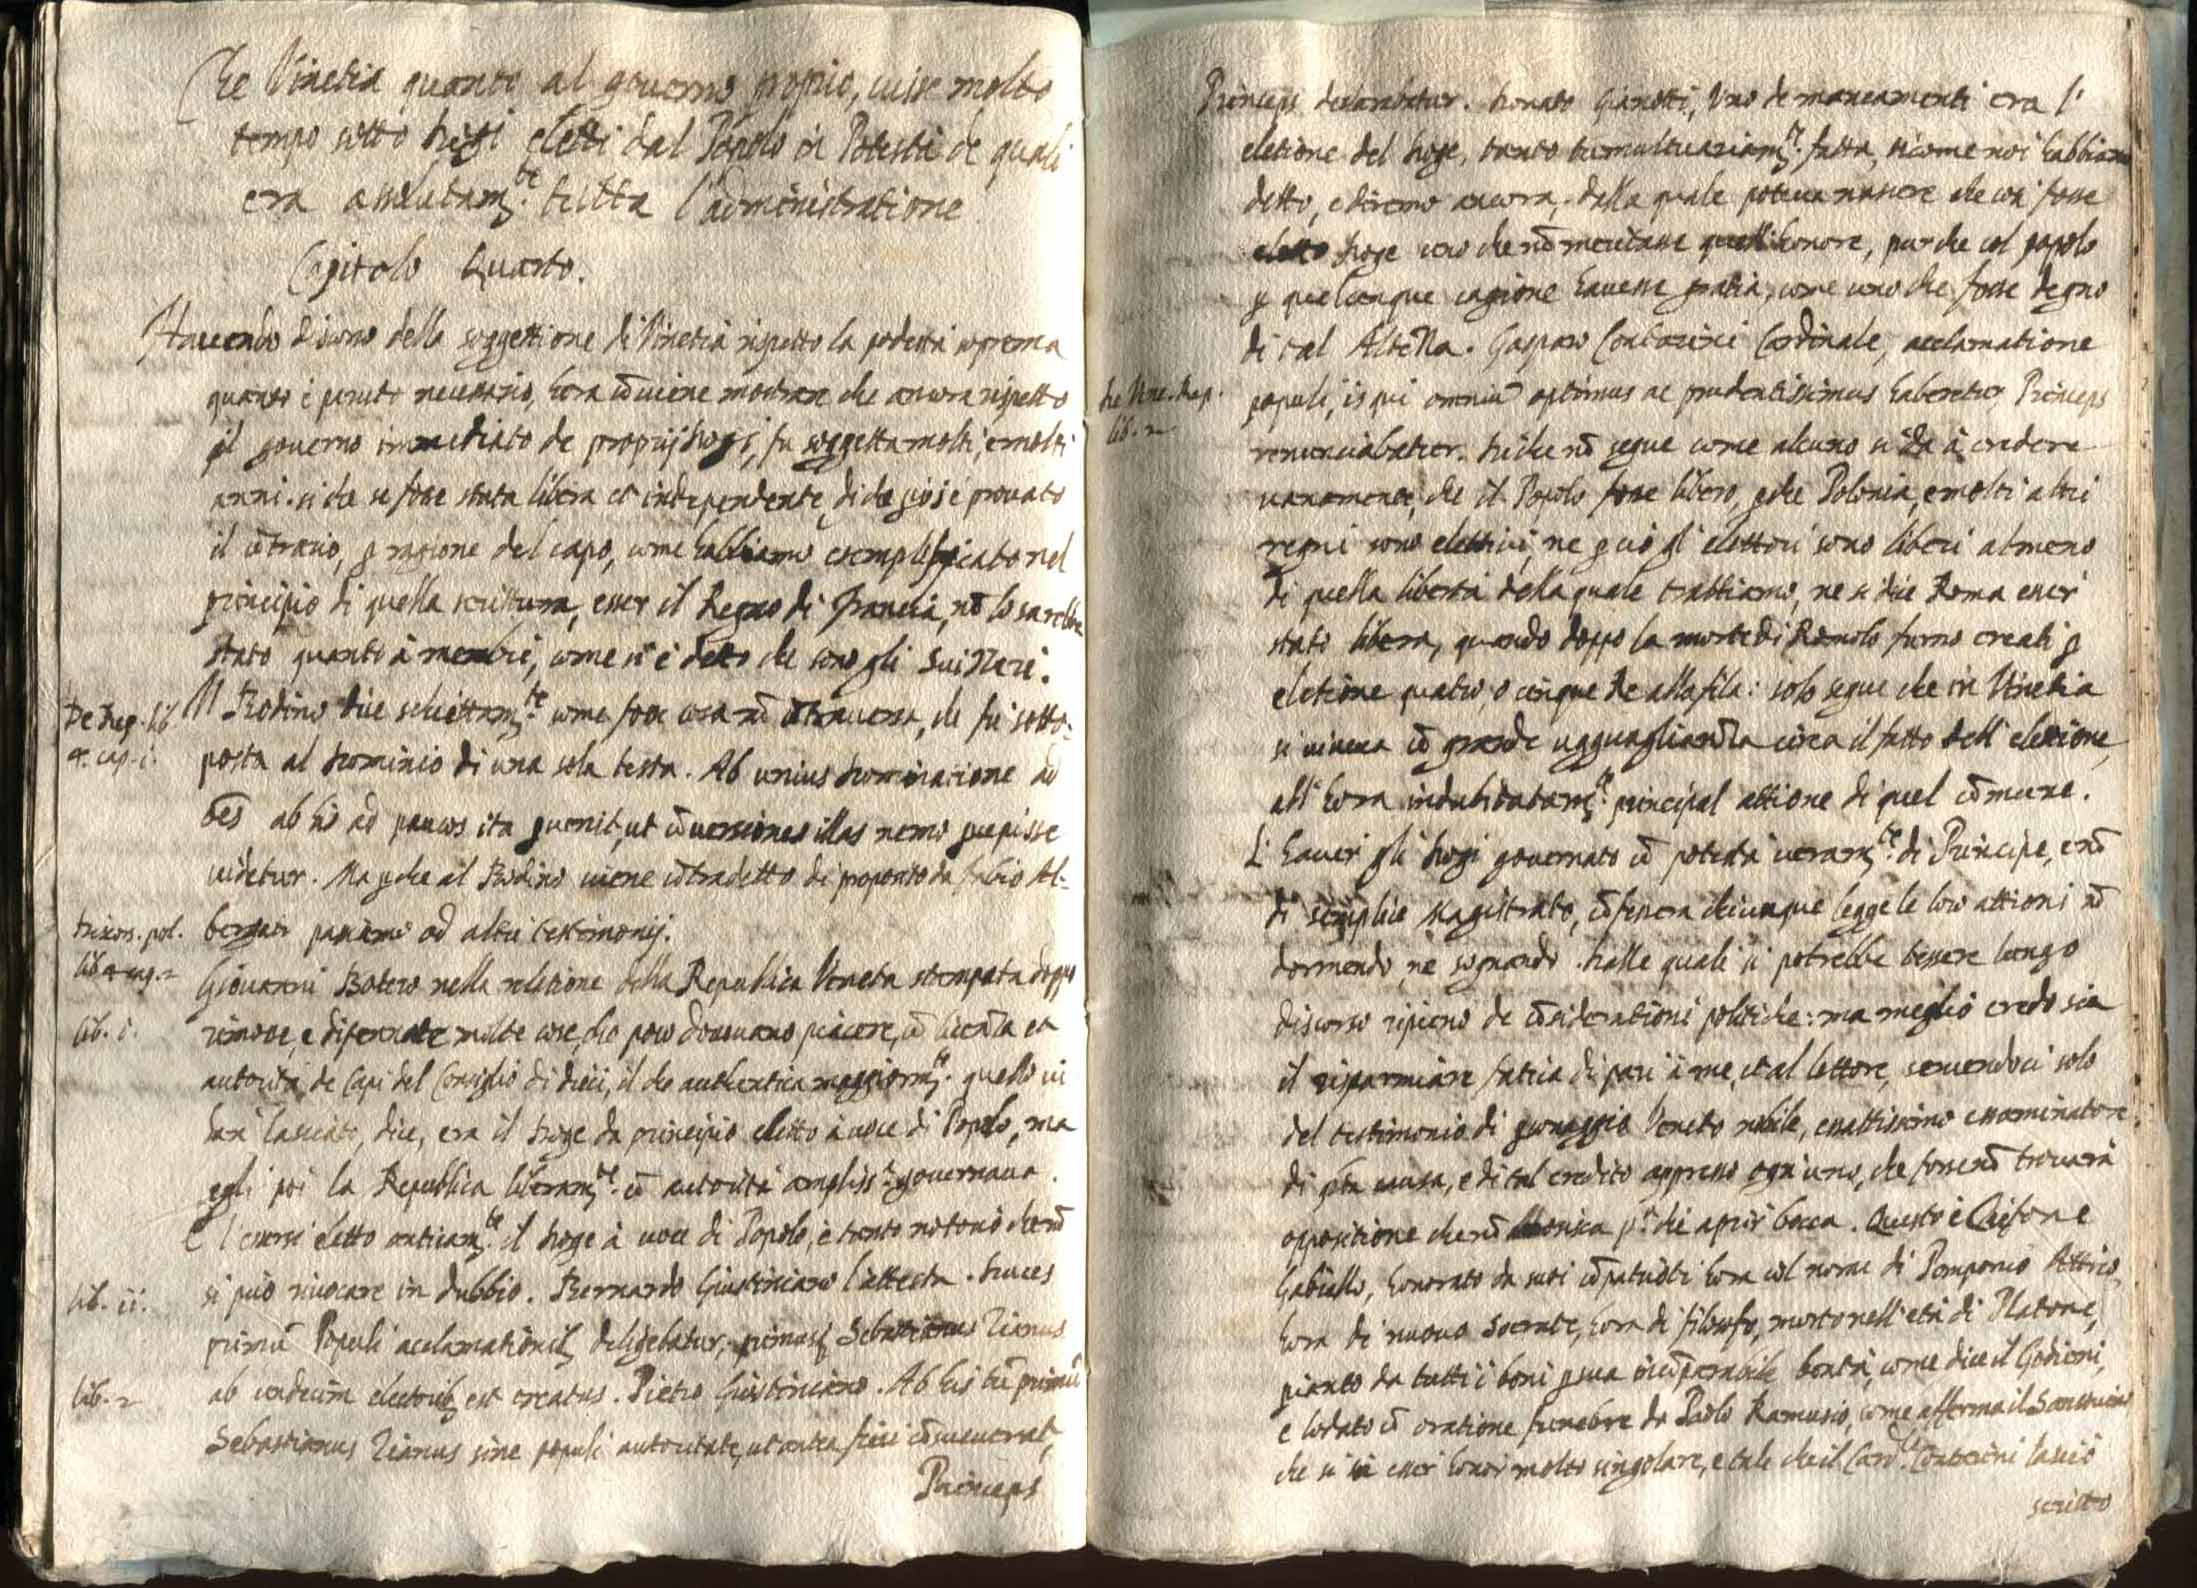 Che Vinetia quanto al governo proprio, visse molto
tempo sotto Dogi eletti dal Popolo in Potestà de quali
era assolutam.te tutta l'administratione
Capitolo Quarto.
Havendo discorso della soggettione di Vinetia rispetto la podestà soprema
quanto è paruto necessario, hora cõuiene mostrare che ancora rispetto
il governo immediato de proprij Dogi, fu soggetta molti, e molti
anni. si che se fosse stata libera et independente, di che già si è prouato
il cõtrario, p ragione del capo, come habbiamo esemplificato nel
principio di questa scrittura, esser il Regno di Francia, nõ lo sarebbe
stato quanto à membri, come si è detto che sono gli Suizzeri.
De Rep. lib
4. cap. i.
Il Bodino dice schiettam.te come fosse cosa nõ cõtrouersa, che fù sotto=
posta al Dominio di una sola testa. Ab unius Dominatione ad
oẽs ab his ad paucos ita peruenit, ut cõuersiones illas nemo percepisse
videtur. Ma perche al Bodino viene cõtradetto di proposito da Fabio Al=
Discors. pol.
bergati passiamo ad altri testimonij.
Giovanni Botero nella relatione della Republica Veneta stampata doppo
lib. i.
rimosse, e molte cose, che poco doveuano piacere, cõ licenza et
autorità de Capi del Consiglio di dieci, il che authentica maggiorm.te quello vi
han lasciato, dice, era il Doge da principio eletto à voce di Popolo, ma
egli poi la Republica liberam.te cõ autorità ampliss.a governaua.
E l'esersi eletto anticam.te il Doge à voce di Popolo, è tanto notorio che nõ
lib. ii.
si può riuocare in dubbio. Bernardo Giustiniano l'attesta. Duces
primũ Populi acclamationib; deligebatur, primusq; Sebastianus Zianus
lib. 2
ab undecim electorib; est creatus. Pietro Giustiniano. Ab his tũ primũ
Sebastianus Zianus sine populi autoritate, ut antea fieri cõsueuerat,
Princeps
Princeps declarabatur. Donato Gianotti, Uno de mancamenti era l'
eletione del Doge, tanto tumultuariam.te fatta, sicome noi habbiamo
detto, e diremo ancora, dalla quale poteua nascere che così fosse
eletto Doge uno che nõ meritasse quell'honore, pur che col popolo
p qualunque cagione hauesse gratia, come uno che fosse degno
di tal Altezza. Gasparo Contarini Cardinale, acclamatione
De Vene. Rep.
lib. 2
populi, is qui omniũ optimus ac prudentissimus haberetur, Princeps
renunciabatur. Di che nõ segue come alcuno si dà à credere
vanamente, che il Popolo fosse libero, pche Polonia, e molti altri
regni sono elettiui, ne p ciò gli elettori sono liberi almeno
di quella libertà della quale trattiamo, ne si dice Roma esser
stato libera, quando doppo la morte di Romolo furno creati p
eletione quatro, o cinque Re alla fila: solo segue che in Vinetia
si viueua cõ grande ugguaglianza circa il fatto dell'eletione,
all'hora indubitatam.te principal attione di quel cõmune.
L'hauer gli Dogi governato cõ potestà veram.te di Principe, e nõ
di semplice Magistrato, cõfessera chiunque legge le loro attioni nõ
dormendo, ne sognando. Dalle quali si potrebbe tessere lungo
discorso ripieno de cõsiderationi politiche: ma meglio credo sia
il risparmiare fatica di pari à me, et al lettore, seruendoci solo
del testimonio di psonaggio Veneto nobile, esattissimo essaminatore
di causa, e di tal credito appresso ogn'uno, che forse nõ trouarà
oppositione che nõ p.a che aprir bocca. Questo è Trifone
Gabriello, honorato da suoi cõpatrioti hora col nome di Pomponio Attico,
hora di nuovo Socrate, hora di filosofo, morto nell'età di Platone,
pianto da tutti i boni p sua incõparabile bontà, come dice il
e lodato cõ oratione funebre da Paolo Ramusio, come afferma il Sansouino
che si in esser honor molto singolare, e tale che il Card.le Contarini lasciò
scritto